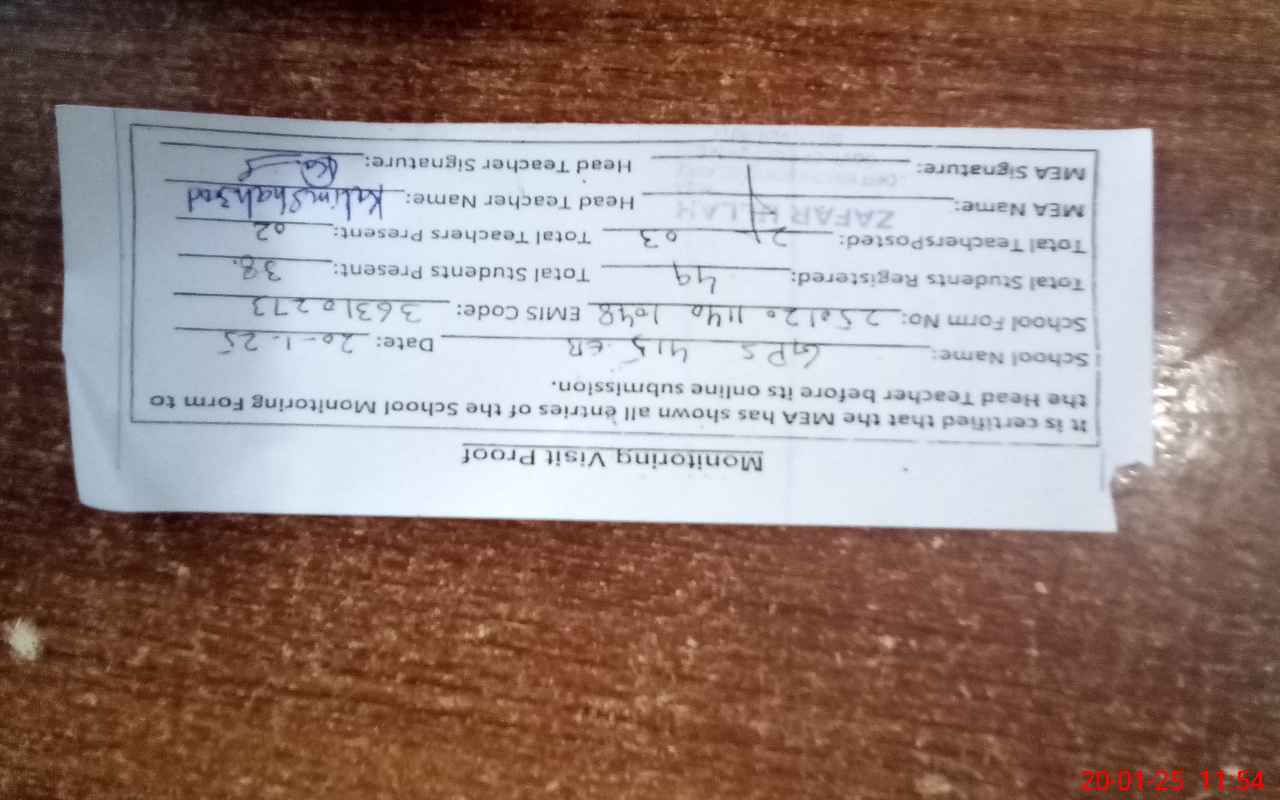 Monitoring Visit Proof
It is certified that the MEA has shown all entries of the School Monitoring Form to
the Head Teacher before its online submission.
School Name: GPS 415 EB Date: 20-1-25
School Form No: 250120 1140 1048 EMIS Code: 36310273
Total Students Registered: 49 Total Students Present: 38
Total TeachersPosted: 03 Total Teachers Present: 02
MEA Name: ZAFAR ULLAH Head Teacher Name: Kalim Shahzad
MEA Signature: Head Teacher Signature:
20-01-25 11:54